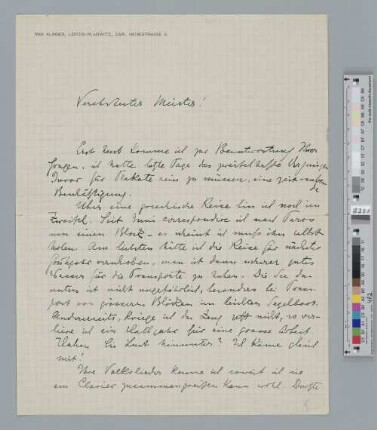 MAX KLINGER, LEIPZIG-PLAGWITZ, CARL HEINESTRASSE 6.
Verehrtester Meister!
Erst heut komme ich zur Beantwortung Ihrer
ich hatte Tage das zweifelhafte Vergnügen
Juror für Plakate sein zu müssen, eine zeitraubende
Beschäftigung.
Über eine griechische Reise bin ich noch im
Zweifel. Seit Juni correspondire ich nach Paros
um einen Block – es scheint ich muss ihn selbst
holen. Am liebsten hätte ich die Reise für nächstes
Frühjahr verschoben, man ist dann sicherer gutes
Wetter für die Transporte zu haben. Die See da
unten ist nicht ungefährlich, besonders bei Trans-
port von grösseren Blöcken im leichten Segelboot.
Andrerseits, kriege ich das Zeug jetzt nicht, so ver-
liere ich ein Halbjahr für eine grosse Arbeit.
Haben Sie Lust mitzumachen? Ich käme gleich
mit!
Ihre Volkslieder kenne ich soweit ich sie
am Clavier zusammengreifen kann wohl. Dürfte